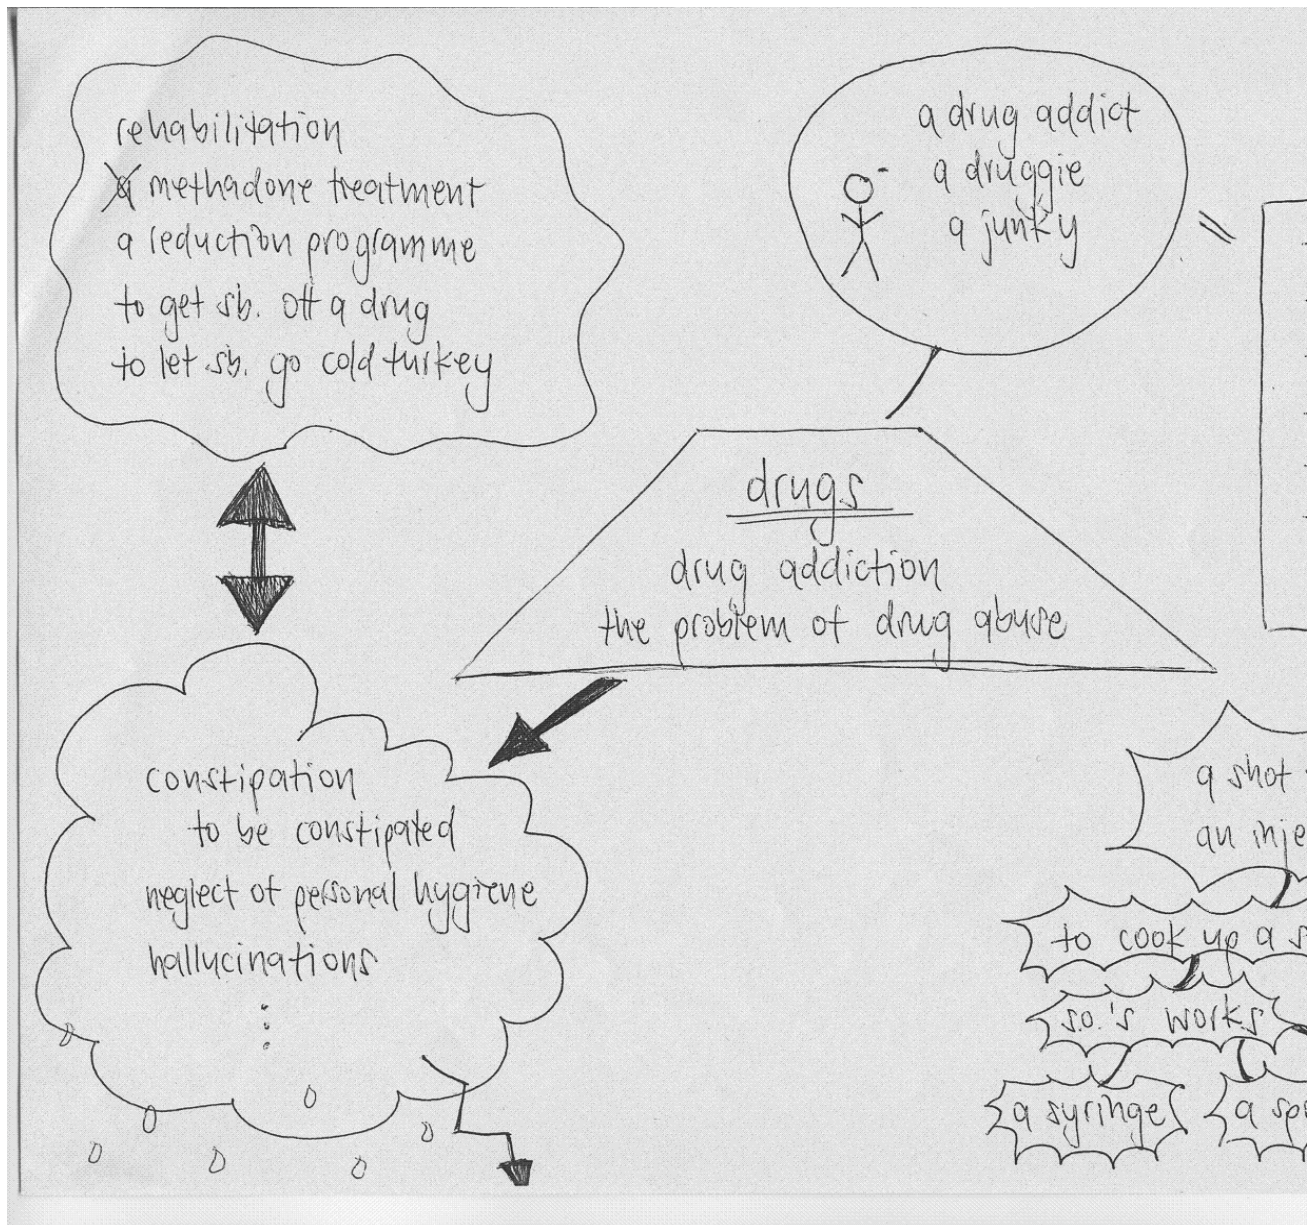 rehabilitation
a methadone treatment
a reduction programme
to get sb. off a drug
to let sb. go cold turkey
a drug addict
a druggie
a junky
drugs
drug addiction
the problem of drug abuse
constipation
to be constipated
neglect of personal hygiene
hallucinations
a shot
an inje
to cook up a s
s.o.'s works
a syringe
a sp